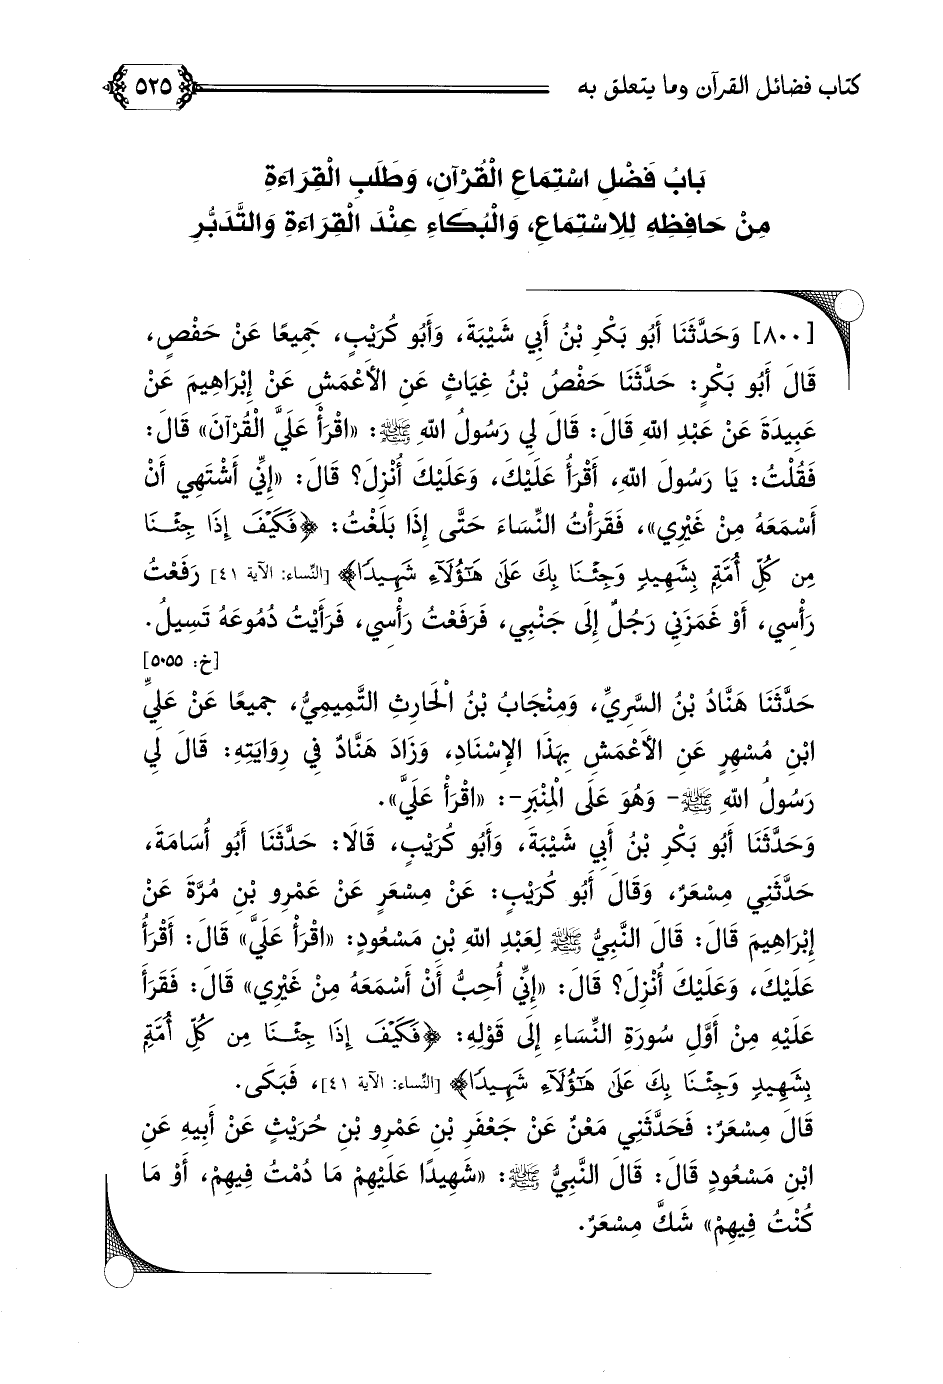 كتاب فضائل القرآن وما يتعلق به
٥٢٥
بَابُ فَضْلِ اسْتِمَاعِ الْقُرْآنِ، وَطَلَبِ الْقِرَاءَةِ
مِنْ حَافِظِهِ لِلِاسْتِمَاعِ، وَالْبُكَاءِ عِنْدَ الْقِرَاءَةِ وَالتَّدَبُّرِ
[٨٠٠] وَحَدَّثَنَا أَبُو بَكْرِ بْنُ أَبِي شَيْبَةَ، وَأَبُو كُرَيْبٍ، جَمِيعًا عَنْ حَفْصٍ،
قَالَ أَبُو بَكْرٍ: حَدَّثَنَا حَفْصُ بْنُ غِيَاثٍ عَنِ الْأَعْمَشِ عَنْ إِبْرَاهِيمَ عَنْ
عَبِيدَةَ عَنْ عَبْدِ اللهِ قَالَ: قَالَ لِي رَسُولُ اللهِ ﷺ: «اقْرَأْ عَلَيَّ الْقُرْآنَ» قَالَ:
فَقُلْتُ: يَا رَسُولَ اللهِ، أَقْرَأُ عَلَيْكَ، وَعَلَيْكَ أُنْزِلَ؟ قَالَ: «إِنِّي أَشْتَهِي أَنْ
أَسْمَعَهُ مِنْ غَيْرِي»، فَقَرَأْتُ النِّسَاءَ حَتَّى إِذَا بَلَغْتُ: ﴿فَكَيْفَ إِذَا جِئْنَا
مِن كُلِّ أُمَّةٍ بِشَهِيدٍ وَجِئْنَا بِكَ عَلَى هَٰٓؤُلَآءِ شَهِيدًا﴾ [النِّساء: الآية ٤١] رَفَعْتُ
رَأْسِي، أَوْ غَمَزَنِي رَجُلٌ إِلَى جَنْبِي، فَرَفَعْتُ رَأْسِي، فَرَأَيْتُ دُمُوعَهُ تَسِيلُ.
[خ: ٥٠٥٥]
حَدَّثَنَا هَنَّادُ بْنُ السَّرِيِّ، وَمِنْجَابُ بْنُ الْحَارِثِ التَّمِيمِيُّ، جَمِيعًا عَنْ عَلِيِّ
ابْنِ مُسْهِرٍ عَنِ الْأَعْمَشِ بِهَذَا الْإِسْنَادِ، وَزَادَ هَنَّادٌ فِي رِوَايَتِهِ: قَالَ لِي
رَسُولُ اللهِ ﷺ- وَهُوَ عَلَى الْمِنْبَرِ-: «اقْرَأْ عَلَيَّ».
وَحَدَّثَنَا أَبُو بَكْرِ بْنُ أَبِي شَيْبَةَ، وَأَبُو كُرَيْبٍ، قَالَا: حَدَّثَنَا أَبُو أُسَامَةَ،
حَدَّثَنِي مِسْعَرٌ، وَقَالَ أَبُو كُرَيْبٍ: عَنْ مِسْعَرٍ عَنْ عَمْرِو بْنِ مُرَّةَ عَنْ
إِبْرَاهِيمَ قَالَ: قَالَ النَّبِيُّ ﷺ لِعَبْدِ اللهِ بْنِ مَسْعُودٍ: «اقْرَأْ عَلَيَّ» قَالَ: أَقْرَأُ
عَلَيْكَ، وَعَلَيْكَ أُنْزِلَ؟ قَالَ: «إِنِّي أُحِبُّ أَنْ أَسْمَعَهُ مِنْ غَيْرِي» قَالَ: فَقَرَأَ
عَلَيْهِ مِنْ أَوَّلِ سُورَةِ النِّسَاءِ إِلَى قَوْلِهِ: ﴿فَكَيْفَ إِذَا جِئْنَا مِن كُلِّ أُمَّةٍ
بِشَهِيدٍ وَجِئْنَا بِكَ عَلَى هَٰٓؤُلَآءِ شَهِيدًا﴾ [النِّساء: الآية ٤١]، فَبَكَى.
قَالَ مِسْعَرٌ: فَحَدَّثَنِي مَعْنٌ عَنْ جَعْفَرِ بْنِ عَمْرِو بْنِ حُرَيْثٍ عَنْ أَبِيهِ عَنِ
ابْنِ مَسْعُودٍ قَالَ: قَالَ النَّبِيُّ ﷺ: «شَهِيدًا عَلَيْهِمْ مَا دُمْتُ فِيهِمْ، أَوْ مَا
كُنْتُ فِيهِمْ» شَكَّ مِسْعَرٌ.